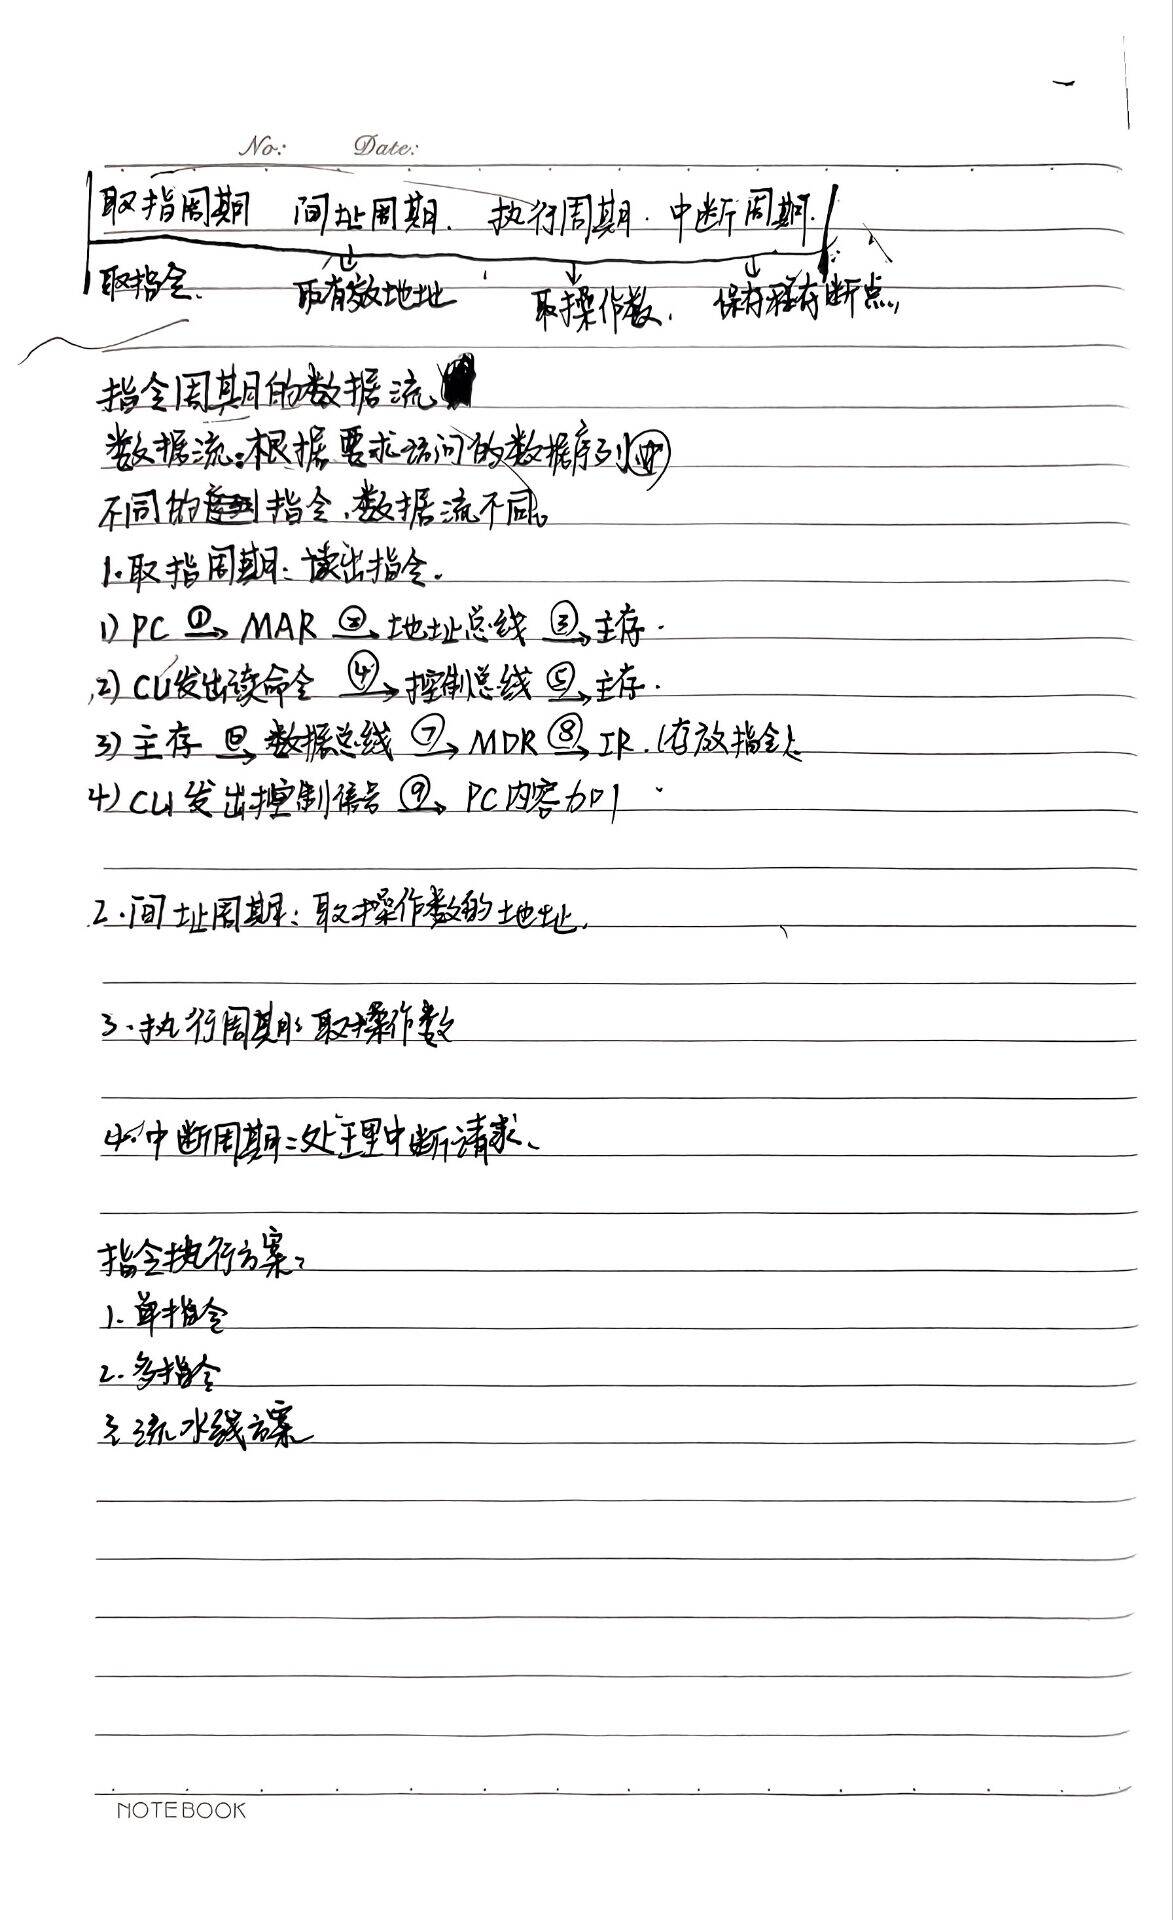 No: Date:
取指周期 间址周期. 执行周期. 中断周期.
取指令. 取有效地址 取操作数. 保存程存断点,
指令周期的数据流
数据流:根据要求访问的数据序列
不同的指令,数据流不同。
1.取指周期:读出指令.
1) PC ①→ MAR ②→ 地址总线 ③→ 主存.
2) CU发出读命令 ④→ 控制总线 ⑤→ 主存.
3) 主存 ⑥→ 数据总线 ⑦→ MDR ⑧→ IR.(存放指令)
4) CU发出控制信号 ⑨→ PC内容加1
2.间址周期:取操作数的地址.
3.执行周期:取操作数
4.中断周期:处理中断请求、
指令执行方案:
1.单指令
2.多指令
3.流水线方案
NOTEBOOK